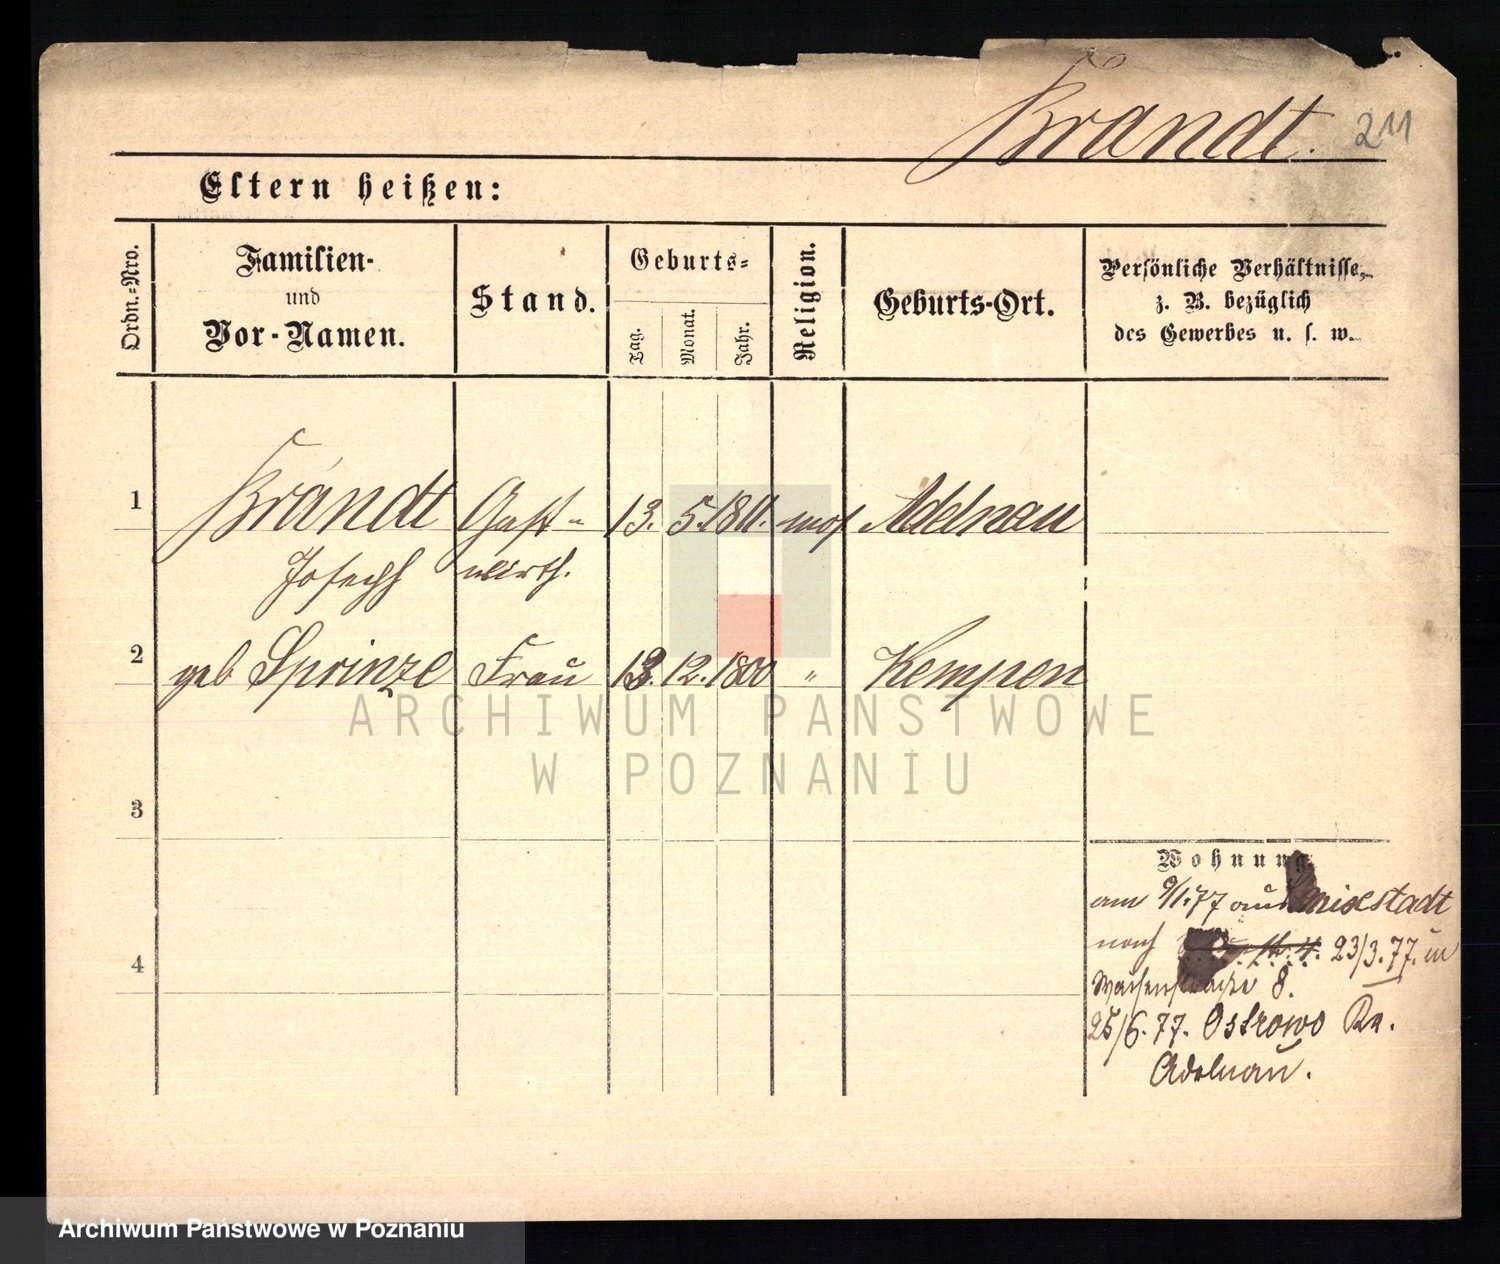 Brandt. 211
Eltern heißen:
Ordn.-Nro.
Familien-
und
Vor-Namen.
Stand.
Geburts-
Tag.
Monat.
Jahr.
Religion.
Geburts-Ort.
Persönliche Verhältnisse,
z. B. bezüglich
des Gewerbes u. s. w.
1 Brandt Gast- 13. 5. 1811. mos Adelnau
Joseph wirth.
2 geb Sprinze Frau 13. 12. 1800 " Kempen
ARCHIWUM PAŃSTWOWE
W POZNANIU
3
4
Wohnung.
am 9/1.77 aus
nach 23/3.77. in
8.
25/6.77. Ostrowo Kr.
Adelnau.
Archiwum Państwowe w Poznaniu